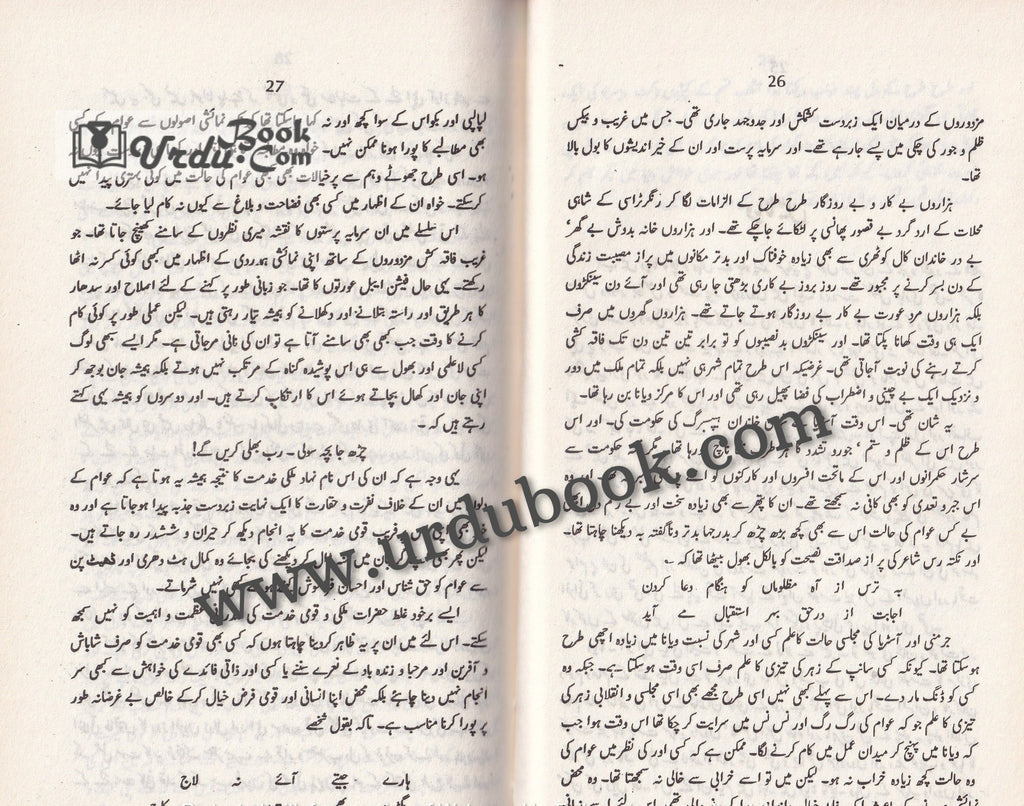 26
مزدوروں کے درمیان ایک زبردست کشمکش اور جدوجہد جاری تھی۔ جس میں غریب و بیکس
ظلم و جور کی چکی میں پسے جا رہے تھے۔ اور سرمایہ پرست اور ان کے خیر اندیشوں کا بول بالا
تھا۔
ہزاروں بے کار و بے روزگار طرح طرح کے الزامات لگا کر زنگرٹراسی کے شاہی
محلات کے ارد گرد بے قصور پھانسی پر لٹکائے جا چکے تھے۔ اور ہزاروں خانہ بدوش بے گھر'
بے در خاندان کال کوٹھری سے بھی زیادہ خوفناک اور بدتر مکانوں میں پراز مصیبت زندگی
کے دن بسر کرنے پر مجبور تھے۔ روز بروز بے کاری بڑھتی جا رہی تھی اور آئے دن سینکڑوں
بلکہ ہزاروں مرد عورت بے کار بے روزگار ہوتے جاتے تھے۔ ہزاروں گھروں میں صرف
ایک ہی وقت کھانا پکتا تھا۔ اور سینکڑوں بدنصیبوں کو تو برابر تین تین دن تک فاقہ کشی
کرتے رہنے کی نوبت آ جاتی تھی۔ غرضیکہ اس طرح تمام شہر ہی نہیں بلکہ تمام ملک میں دور
و نزدیک ایک بے چینی و اضطراب کی فضا پھیل رہی تھی اور اس کا مرکز ویانا بن رہا تھا۔
یہ شان تھی۔ اس وقت خاندان ہیپسبرگ کی حکومت کی۔ اور اس
طرح اس کے ظلم و ستم' جور و تشدد کا ہر رہا تھا۔ حکومت سے
سرشار حکمرانوں اور اس کے ماتحت افسروں اور کارکنوں کو
اس جبر و تعدی کو بھی کافی نہ سمجھتے تھے۔ ان کا پتھر سے بھی زیادہ سخت اور بے رحم
بے کس عوام کی حالت اس سے بھی کچھ بڑھ چڑھ کر بدرجہا بدتر و ناگفتہ بہ دیکھنا چاہتا تھا۔
اور نکتہ رس شاعر کی پراز صداقت نصیحت کو بالکل بھول بیٹھا تھا کہ ؎
ترس از آہ مظلوماں کہ ہنگام دعا کردن
اجابت از در حق بہر استقبال مے آید
جرمنی اور آسٹریا کی مجلسی حالت کا علم کسی اور شہر کی نسبت ویانا میں زیادہ اچھی طرح
ہو سکتا تھا۔ کیونکہ کسی سانپ کے زہر کی تیزی کا علم صرف اسی وقت ہو سکتا ہے۔ جبکہ وہ
کسی کو ڈنک مار دے۔ اس سے پہلے کبھی نہیں اسی طرح مجھے بھی اس مجلسی و انقلابی زہر کی
تیزی کا علم جو کہ عوام کی رگ رگ اور نس نس میں سرایت کر چکا تھا اس وقت ہوا جب
کہ ویانا میں پہنچ کر میدان عمل میں کام کرنے لگا۔ ممکن ہے کہ کسی اور کی نظر میں عوام کی
وہ حالت کچھ زیادہ خراب نہ ہو۔ لیکن میں تو اسے خرابی سے خالی نہ سمجھتا تھا۔ وہ محض
27
لپالپی اور بکواس کے سوا کچھ اور نہ کہا جا سکتا تھا نمائشی اصولوں سے عوام کے کسی
بھی مطالبے کا پورا ہونا ممکن نہیں۔
ہو۔ اسی طرح جھوٹے وہم سے پر خیالات بھی کبھی عوام کی حالت میں کوئی بہتری پیدا نہیں
کر سکتے۔ خواہ ان کے اظہار میں کسی بھی فصاحت و بلاغ سے کیوں نہ کام لیا جائے۔
اس سلسلے میں ان سرمایہ پرستوں کا نقشہ میری نظروں کے سامنے کھنچ جاتا تھا۔ جو
غریب فاقہ کش مزدوروں کے ساتھ اپنی نمائشی ہمدردی کے اظہار میں کبھی کوئی کسر نہ اٹھا
رکھتے۔ یہی حال فیشن ایبل عورتوں کا تھا۔ جو زبانی طور پر کہنے کے لئے اصلاح اور سدھار
کا ہر طریق اور راستہ بتلانے اور دکھلانے کو ہمیشہ تیار رہتی ہیں۔ لیکن عملی طور پر کوئی کام
کرنے کا وقت جب کبھی بھی سامنے آتا ہے تو ان کی نانی مر جاتی ہے۔ مگر ایسے سبھی لوگ
کسی لاعلمی اور بھول سے ہی اس پوشیدہ گناہ کے مرتکب نہیں ہوتے بلکہ ہمیشہ جان بوجھ کر
اپنی جان اور کھال بچاتے ہوئے اس کا ارتکاب کرتے ہیں۔ اور دوسروں کو ہمیشہ یہی کہتے
رہتے ہیں کہ ؎
چڑھ جا بچہ سولی۔ رب بھلی کریں گے!
یہی وجہ ہے کہ ان کی اس نام نہاد ملکی خدمت کا نتیجہ ہمیشہ یہ ہوتا ہے کہ عوام کے
دلوں میں ان کے خلاف نفرت و حقارت کا ایک نہایت زبردست جذبہ پیدا ہو جاتا ہے اور وہ
فریب قومی خدمت کا یہ انجام دیکھ کر حیران و ششدر رہ جاتے ہیں۔
لیکن پھر بھی ڈال کر دیکھنے کی بجائے وہ کمال ہٹ دھرمی اور ڈھیٹ پن
سے عوام کو حق شناس اور احسان نہیں شرماتے۔
ایسے برخود غلط حضرات ملکی و قومی خدمت کی عظمت و اہمیت کو نہیں سمجھ
سکتے۔ اس لئے میں ان پر یہ ظاہر کر دینا چاہتا ہوں کہ کسی بھی قومی خدمت کو صرف شاباش
و آفرین اور مرحبا و زندہ باد کے نعرے سننے یا کسی اور ذاتی فائدے کی خواہش سے کبھی سر
انجام نہیں دینا چاہئے بلکہ محض اپنا انسانی اور قومی فرض خیال کر کے خالص بے غرضانہ طور
پر پورا کرنا مناسب ہے۔ تاکہ بقول شخصے
ہارے جیتے آئے نہ لاج
Urdu Book .Com
www.urdubook.com